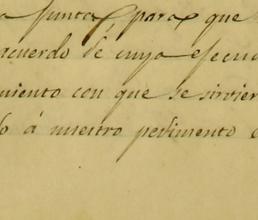 a Junta, para que
acuerdo de cuya ejecuc
miento con que se sirvier
lo á nuestro pedimento